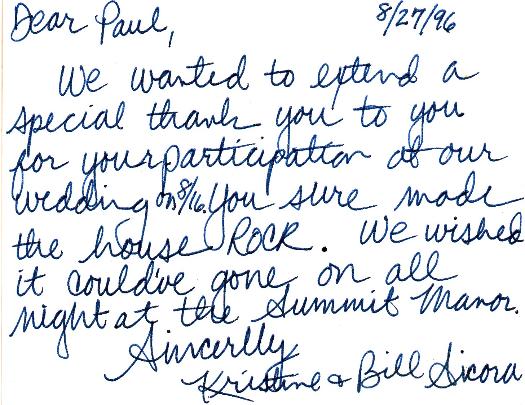 Dear Paul, 8/27/96
We wanted to extend a
special thank you to you
for your participation at our
wedding on 8/16. You sure made
the house ROCK. We wished
it could've gone on all
night at the Summit Manor.
Sincerlly
Kristine & Bill Sicora